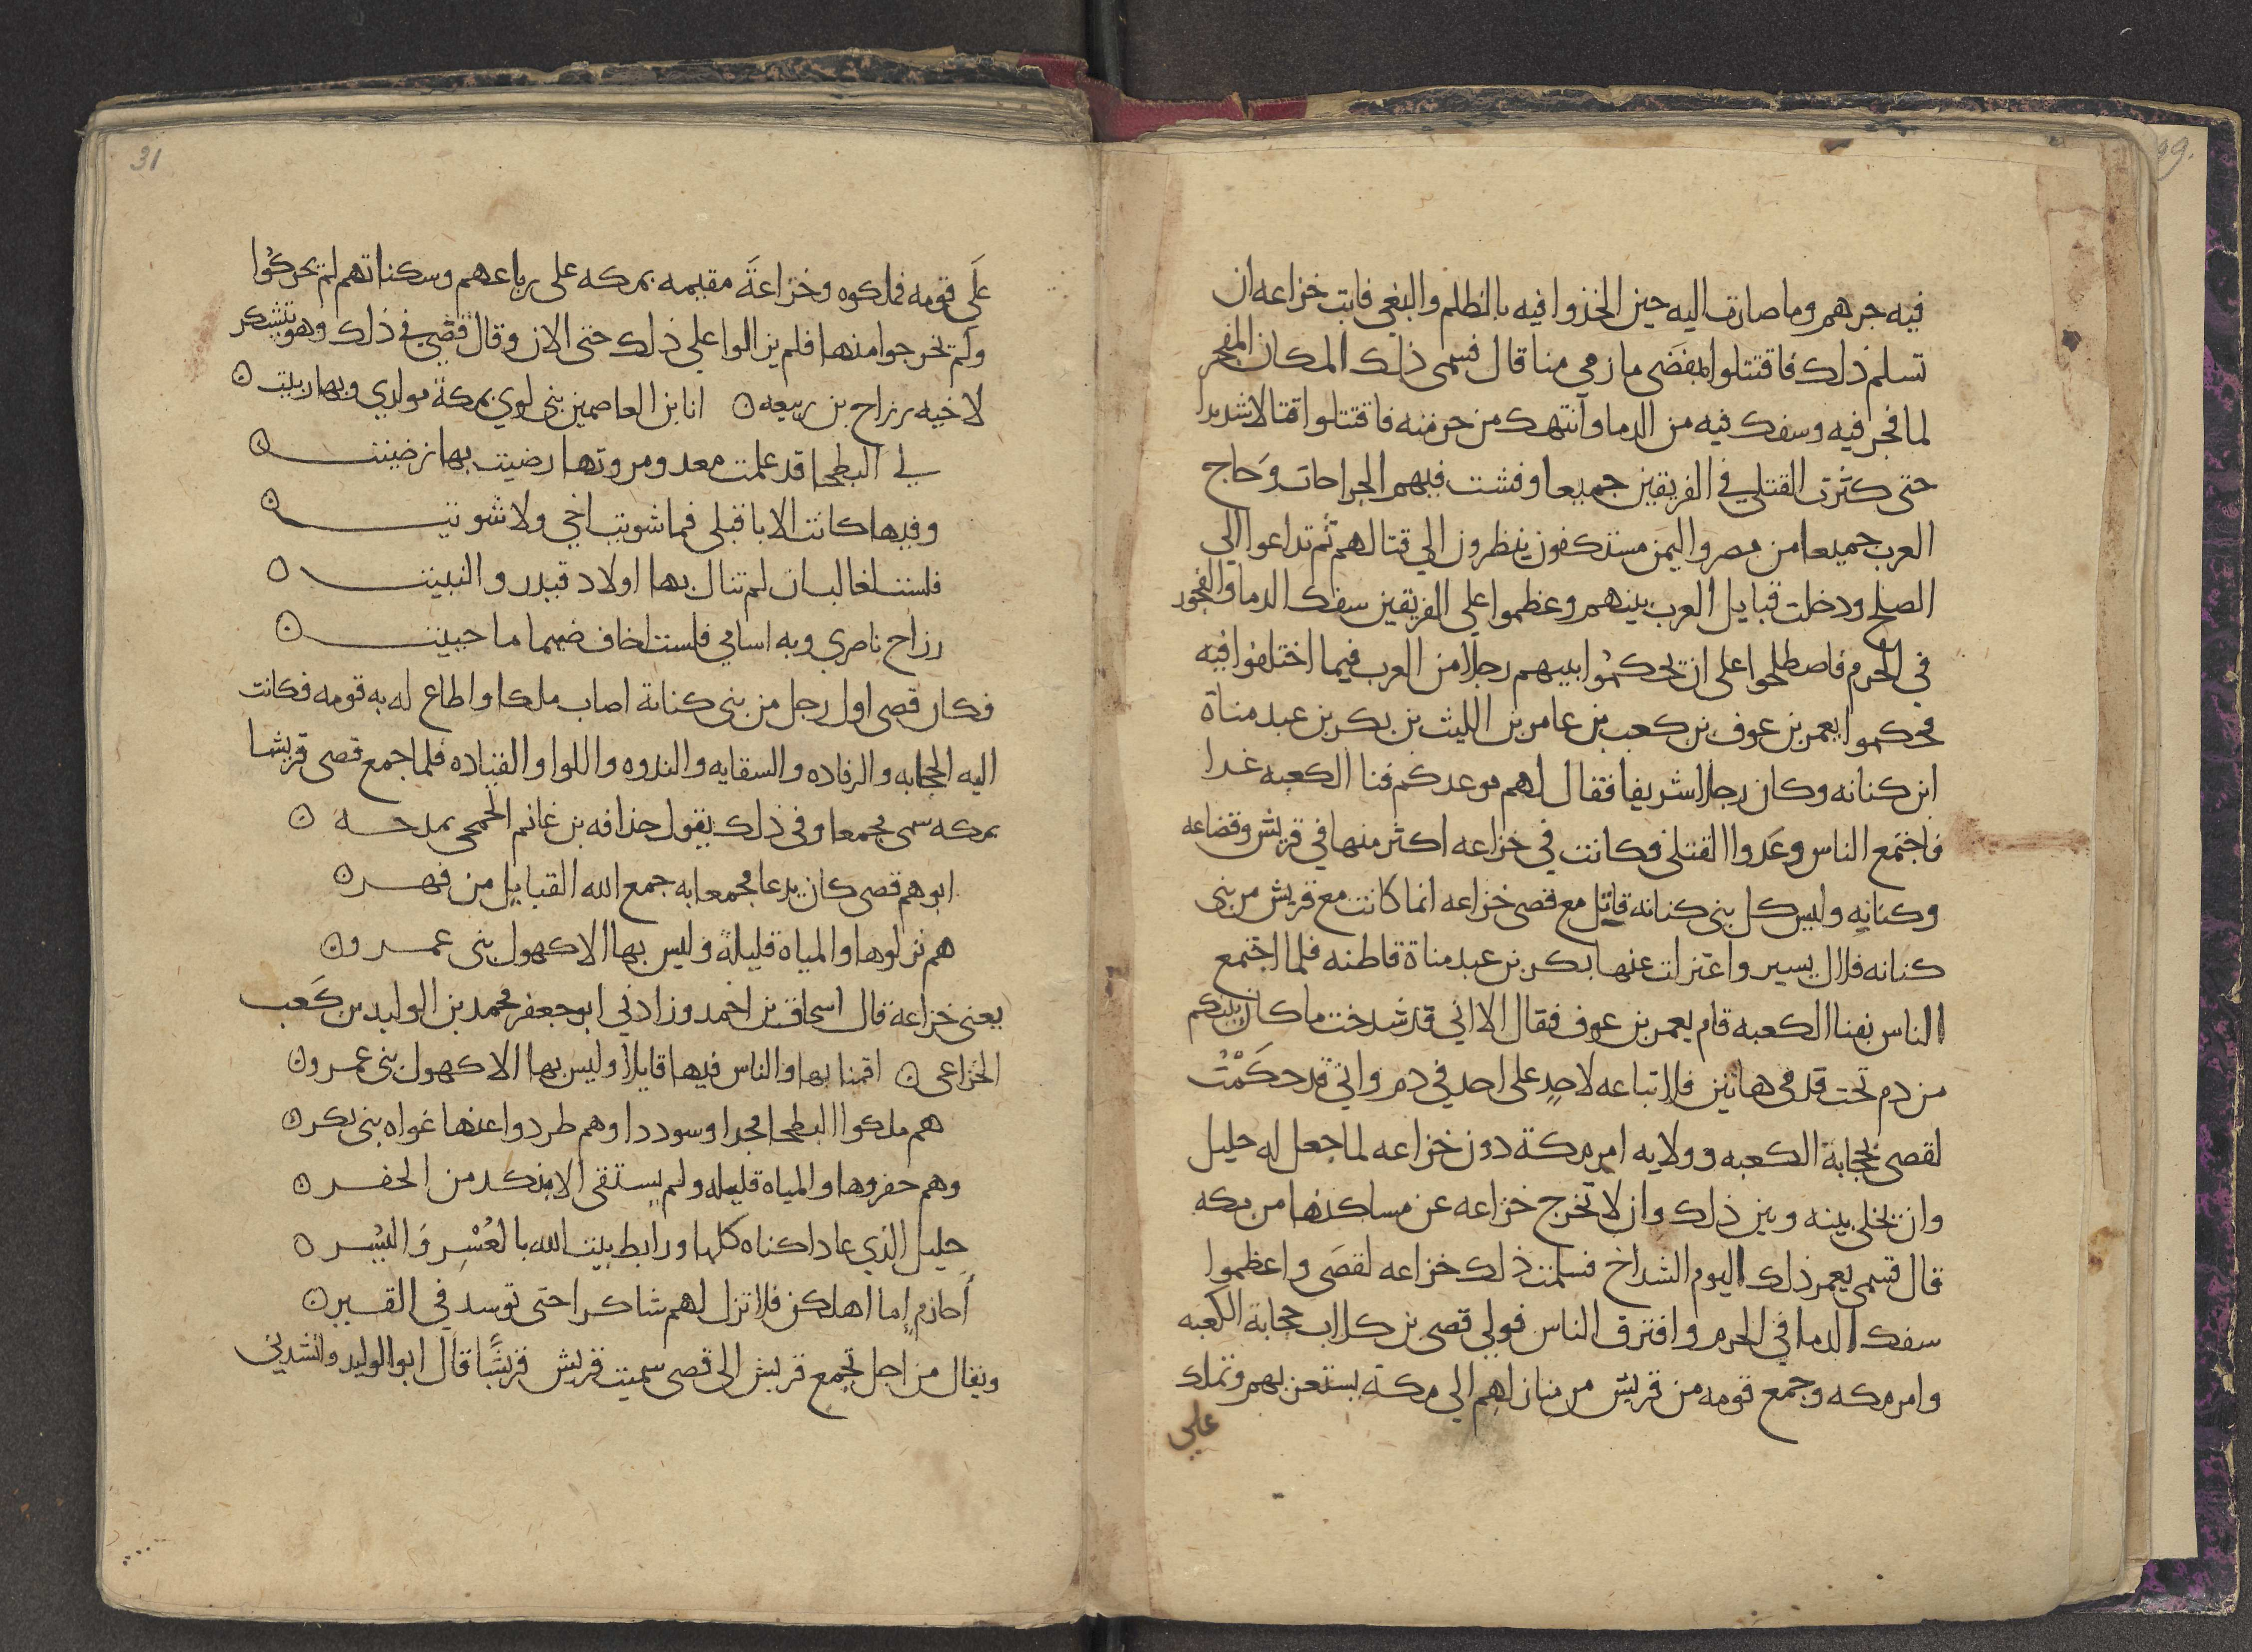 فيه جرهم وما صارت اليه حين الحذوا فيه بالظلم والبغي فابت خزاعه ان
تسلم ذلك فاقتتلوا بمفضى مازمي منا قال فسمى ذلك المكان المفجر
لما فجر فيه وسفك فيه من الدما وانتهك من حرمته فاقتتلوا قتالا شديدا
حتى كثرت القتلى في الفريقين جميعا وفشت فيهم الجراحات وحاج
العرب جميعا من مضر واليمن مستكفون ينظرون الي قتالهم ثم تداعوا الي
الصلح ودخلت قبايل العرب بينهم وعظموا على الفريقين سفك الدما والفجور
في الحرم فاصطلحوا على ان يحكموا بينهم رجلا من العرب فيما اختلفوا فيه
فحكموا يعمر بن عوف بن كعب بن عامر بن الليث بن بكر بن عبد مناة
ابن كنانه وكان رجلا شريفا فقال لهم موعدكم فنا الكعبه غدا
فاجتمع الناس وعدوا القتلى فكانت في خزاعه اكثر منها في قريش وقضاعه
وكنانه وليس كل بني كنانه قاتل مع قصى خزاعه انما كانت مع قريش من بنى
كنانه فلال يسير واعتزلت عنها بكر بن عبد مناة قاطنه فلما اجتمع
الناس بفنا الكعبه قام يعمر بن عوف فقال الا اني قد شدخت ما كان بينكم
من دم تحت قدمي هاتين فلا تباعه لاحد على احد في دم واني قد حكمت
لقصى بحجابة الكعبه وولايه امر مكة دون خزاعه لما جعل له حليل
وان يخلى بينه وبين ذلك وان لا تخرج خزاعه عن مساكنها من مكه
قال فسمى يعمر ذلك اليوم الشداخ فسلمت ذلك خزاعه لقصى واعظموا
سفك الدما في الحرم وافترق الناس فولي قصى بن كلاب حجابة الكعبه
وامر مكه وجمع قومه من قريش من منازلهم الي مكة يستعن بهم وتملك
علي
31
على قومه فملكوه وخزاعة مقيمه بمكه على رباعهم وسكناتهم لم يحركوا
ولم يخرجوا منها فلم يزالوا على ذلك حتى الان وقال قصى في ذلك وهو يتشكر
لاخيه رزاح بن ربيعه ن انا بن العاصمين بني لوي بمكة مولدي وبها ربيت ن
لي البطحا قد علمت معد ومروتها رضيت بها رضيت ن
وفيها كانت الابا قبلي فما شويت اخي ولا شويت ن
فلست لغالب ان لم تنال بها اولاد قيدر والنبيت ن
رزاح ناصري وبه اسامي فلست اخاف ضيما ما حييت ن
فكان قصى اول رجل من بنى كنانة اصاب ملكا واطاع له به قومه فكانت
اليه الحجابه والرفاده والسقايه والندوه واللوا والقياده فلما اجمع قصى قريشا
بمكه سمى مجمعا وفي ذلك يقول حذافه بن غانم الجمحى يمدحه ن
ابوهم قصى كان يدعا مجمعا به جمع الله القبايل من فهر ن
هم نزلوها والمياه قليلة وليس بها الا كهول بنى عمرو ن
يعنى خزاعة قال اسحاق بن احمد وزادني ابو جعفر محمد بن الوليد بن كعب
الخزاعى ن اقمنا بها والناس فيها قايلا وليس بها الا كهول بنى عمرو ن
هم ملكوا البطحا مجدا وسوددا وهم طردوا عنها غواه بنى بكر ن
وهم حفروها والمياه قليله ولم يستقى الا بنكد من الحفر ن
حليل الذي عادا كناه كلها ورابط بيت الله بالعسر واليسر ن
احازم اما اهلكن فلا تزل لهم شاكرا حتى توسد في القبر ن
ويقال من اجل تجمع قريش الى قصى سميت قريش قريشا قال ابو الوليد وانشدني